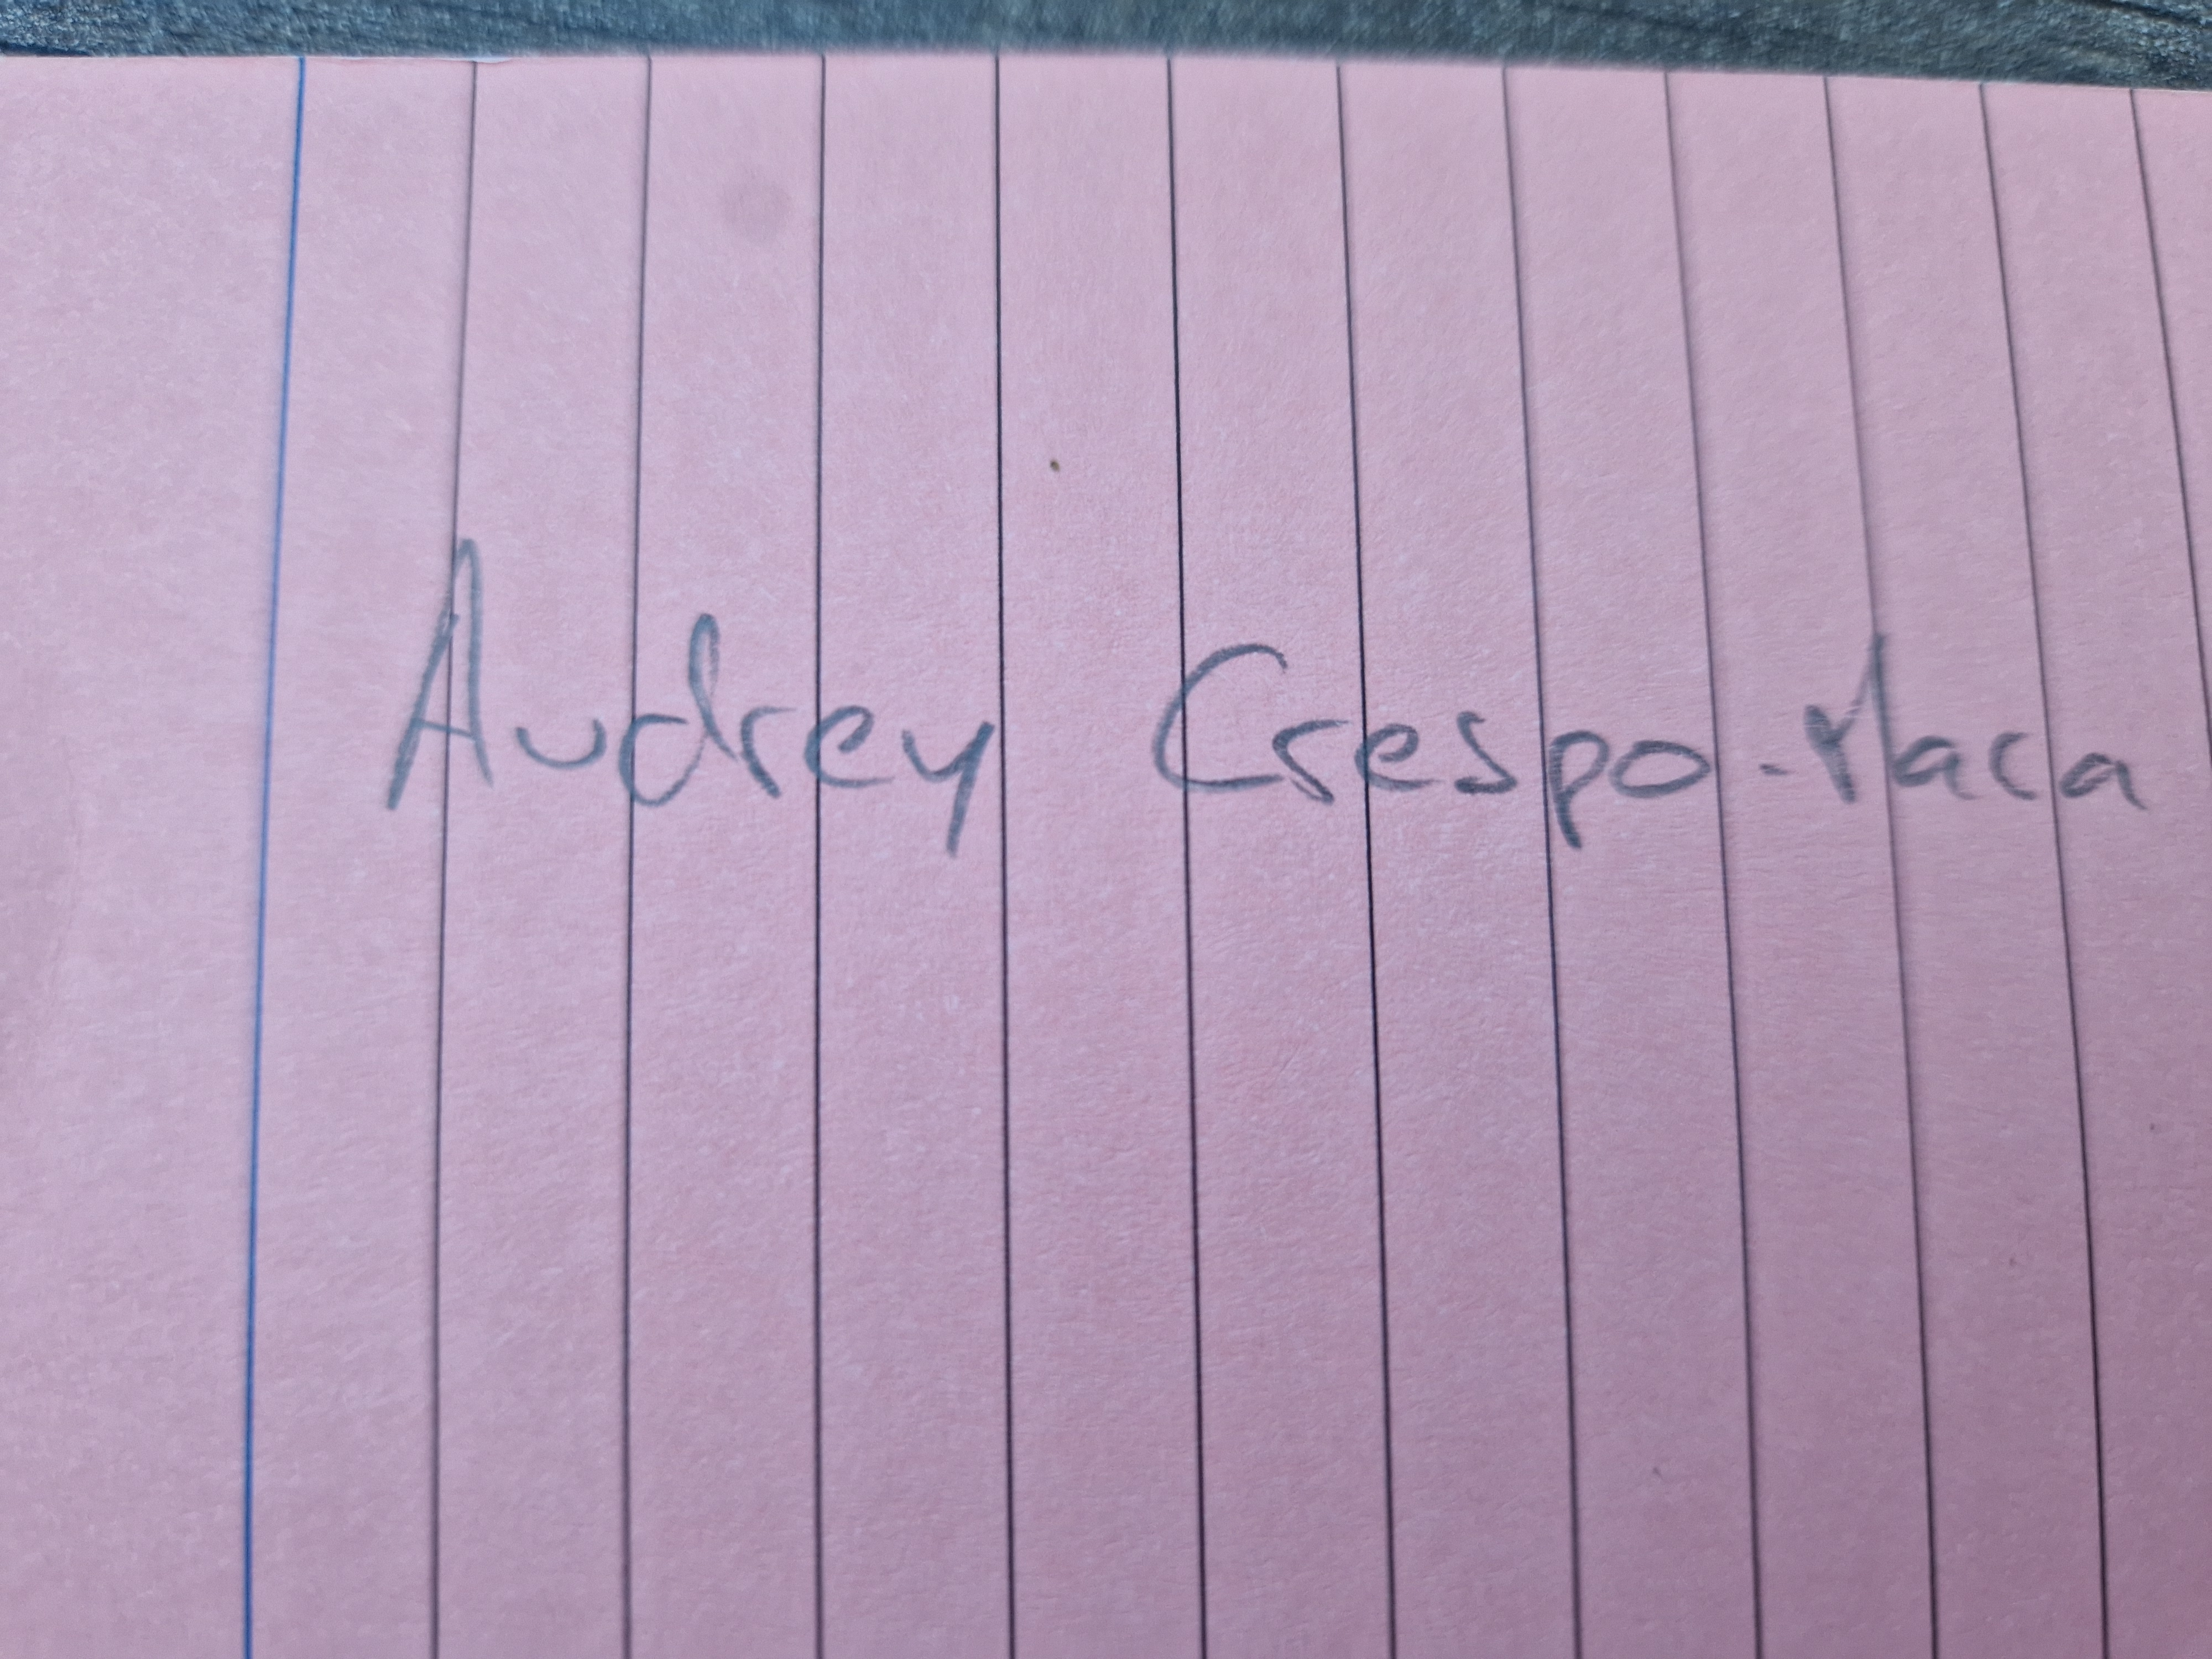 Audrey Crespo-Maca